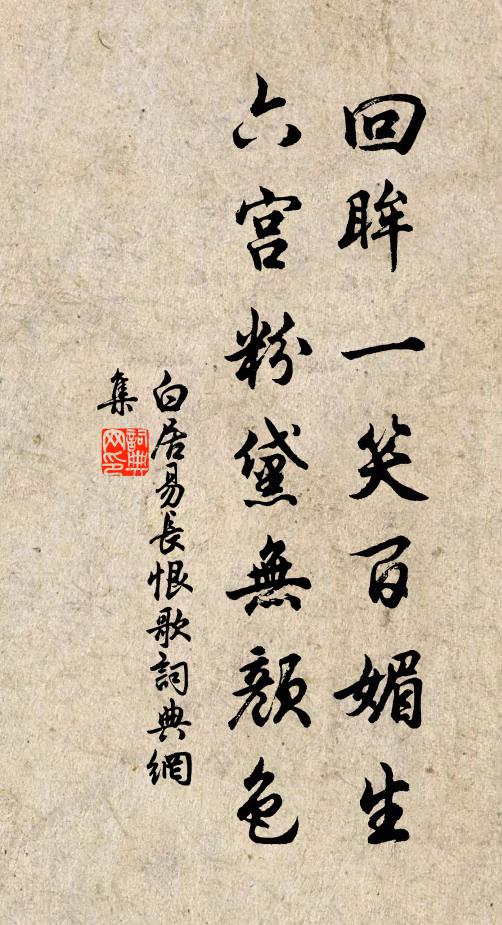 回眸一笑百媚生
六宫粉黛無顏色
白居易長恨歌詞典網
集
詞典网印